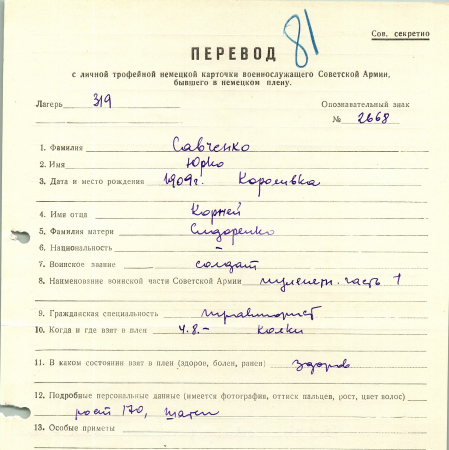 81
Сов. секретно
ПЕРЕВОД
с личной трофейной немецкой карточки военнослужащего Советской Армии,
бывшего в немецком плену.
Лагерь 319 Опознавательный знак
№ 2668
1. Фамилия Савченко
2. Имя Юрко
3. Дата и место рождения 1909г. Короливка
4. Имя отца Корней
5. Фамилия матери Сидоренко
6. Национальность –
7. Воинское звание солдат
8. Наименование воинской части Советской Армии пулеметн. часть 1
9. Гражданская специальность
10. Когда и где взят в плен 4.8.– Колки
11. В каком состоянии взят в плен (здоров, болен, ранен) здоров
12. Подробные персональные данные (имеется фотография, оттиск пальцев, рост, цвет волос)
рост 170, шатен
13. Особые приметы